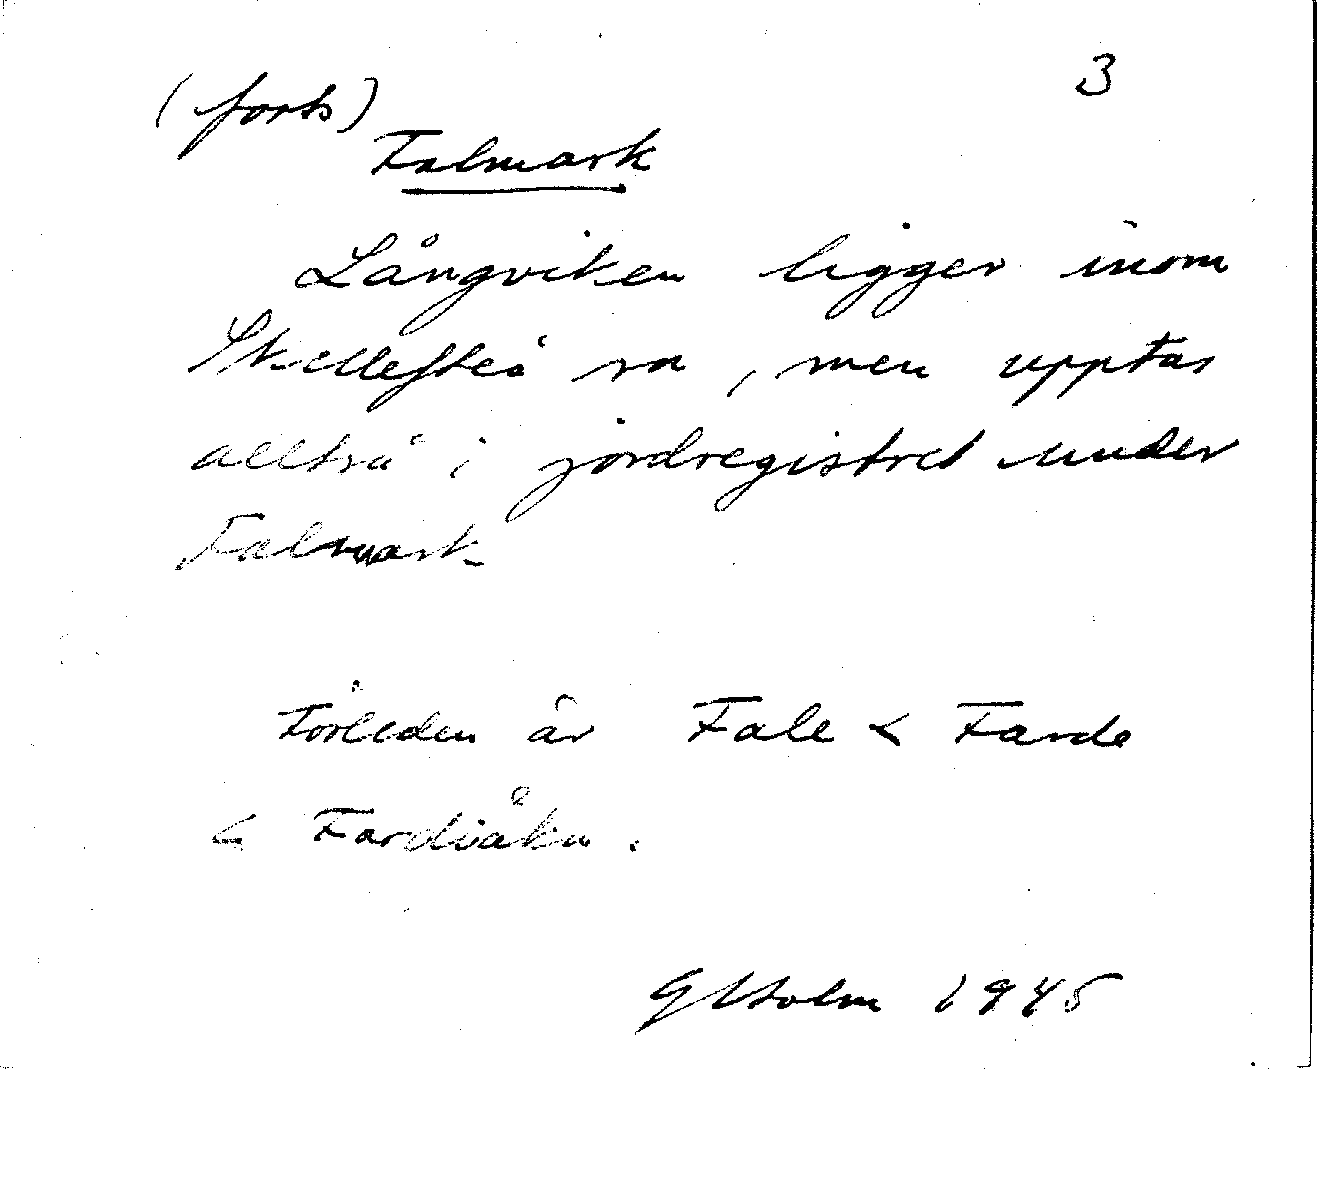 3
(forts)
Falmark
Långviken ligger inom
Skellefteå sn, men upptas
alltså i jordregistret under
Falmark
Förleden är Fale < Farde
< Fardiåkn.
G Holm 1945